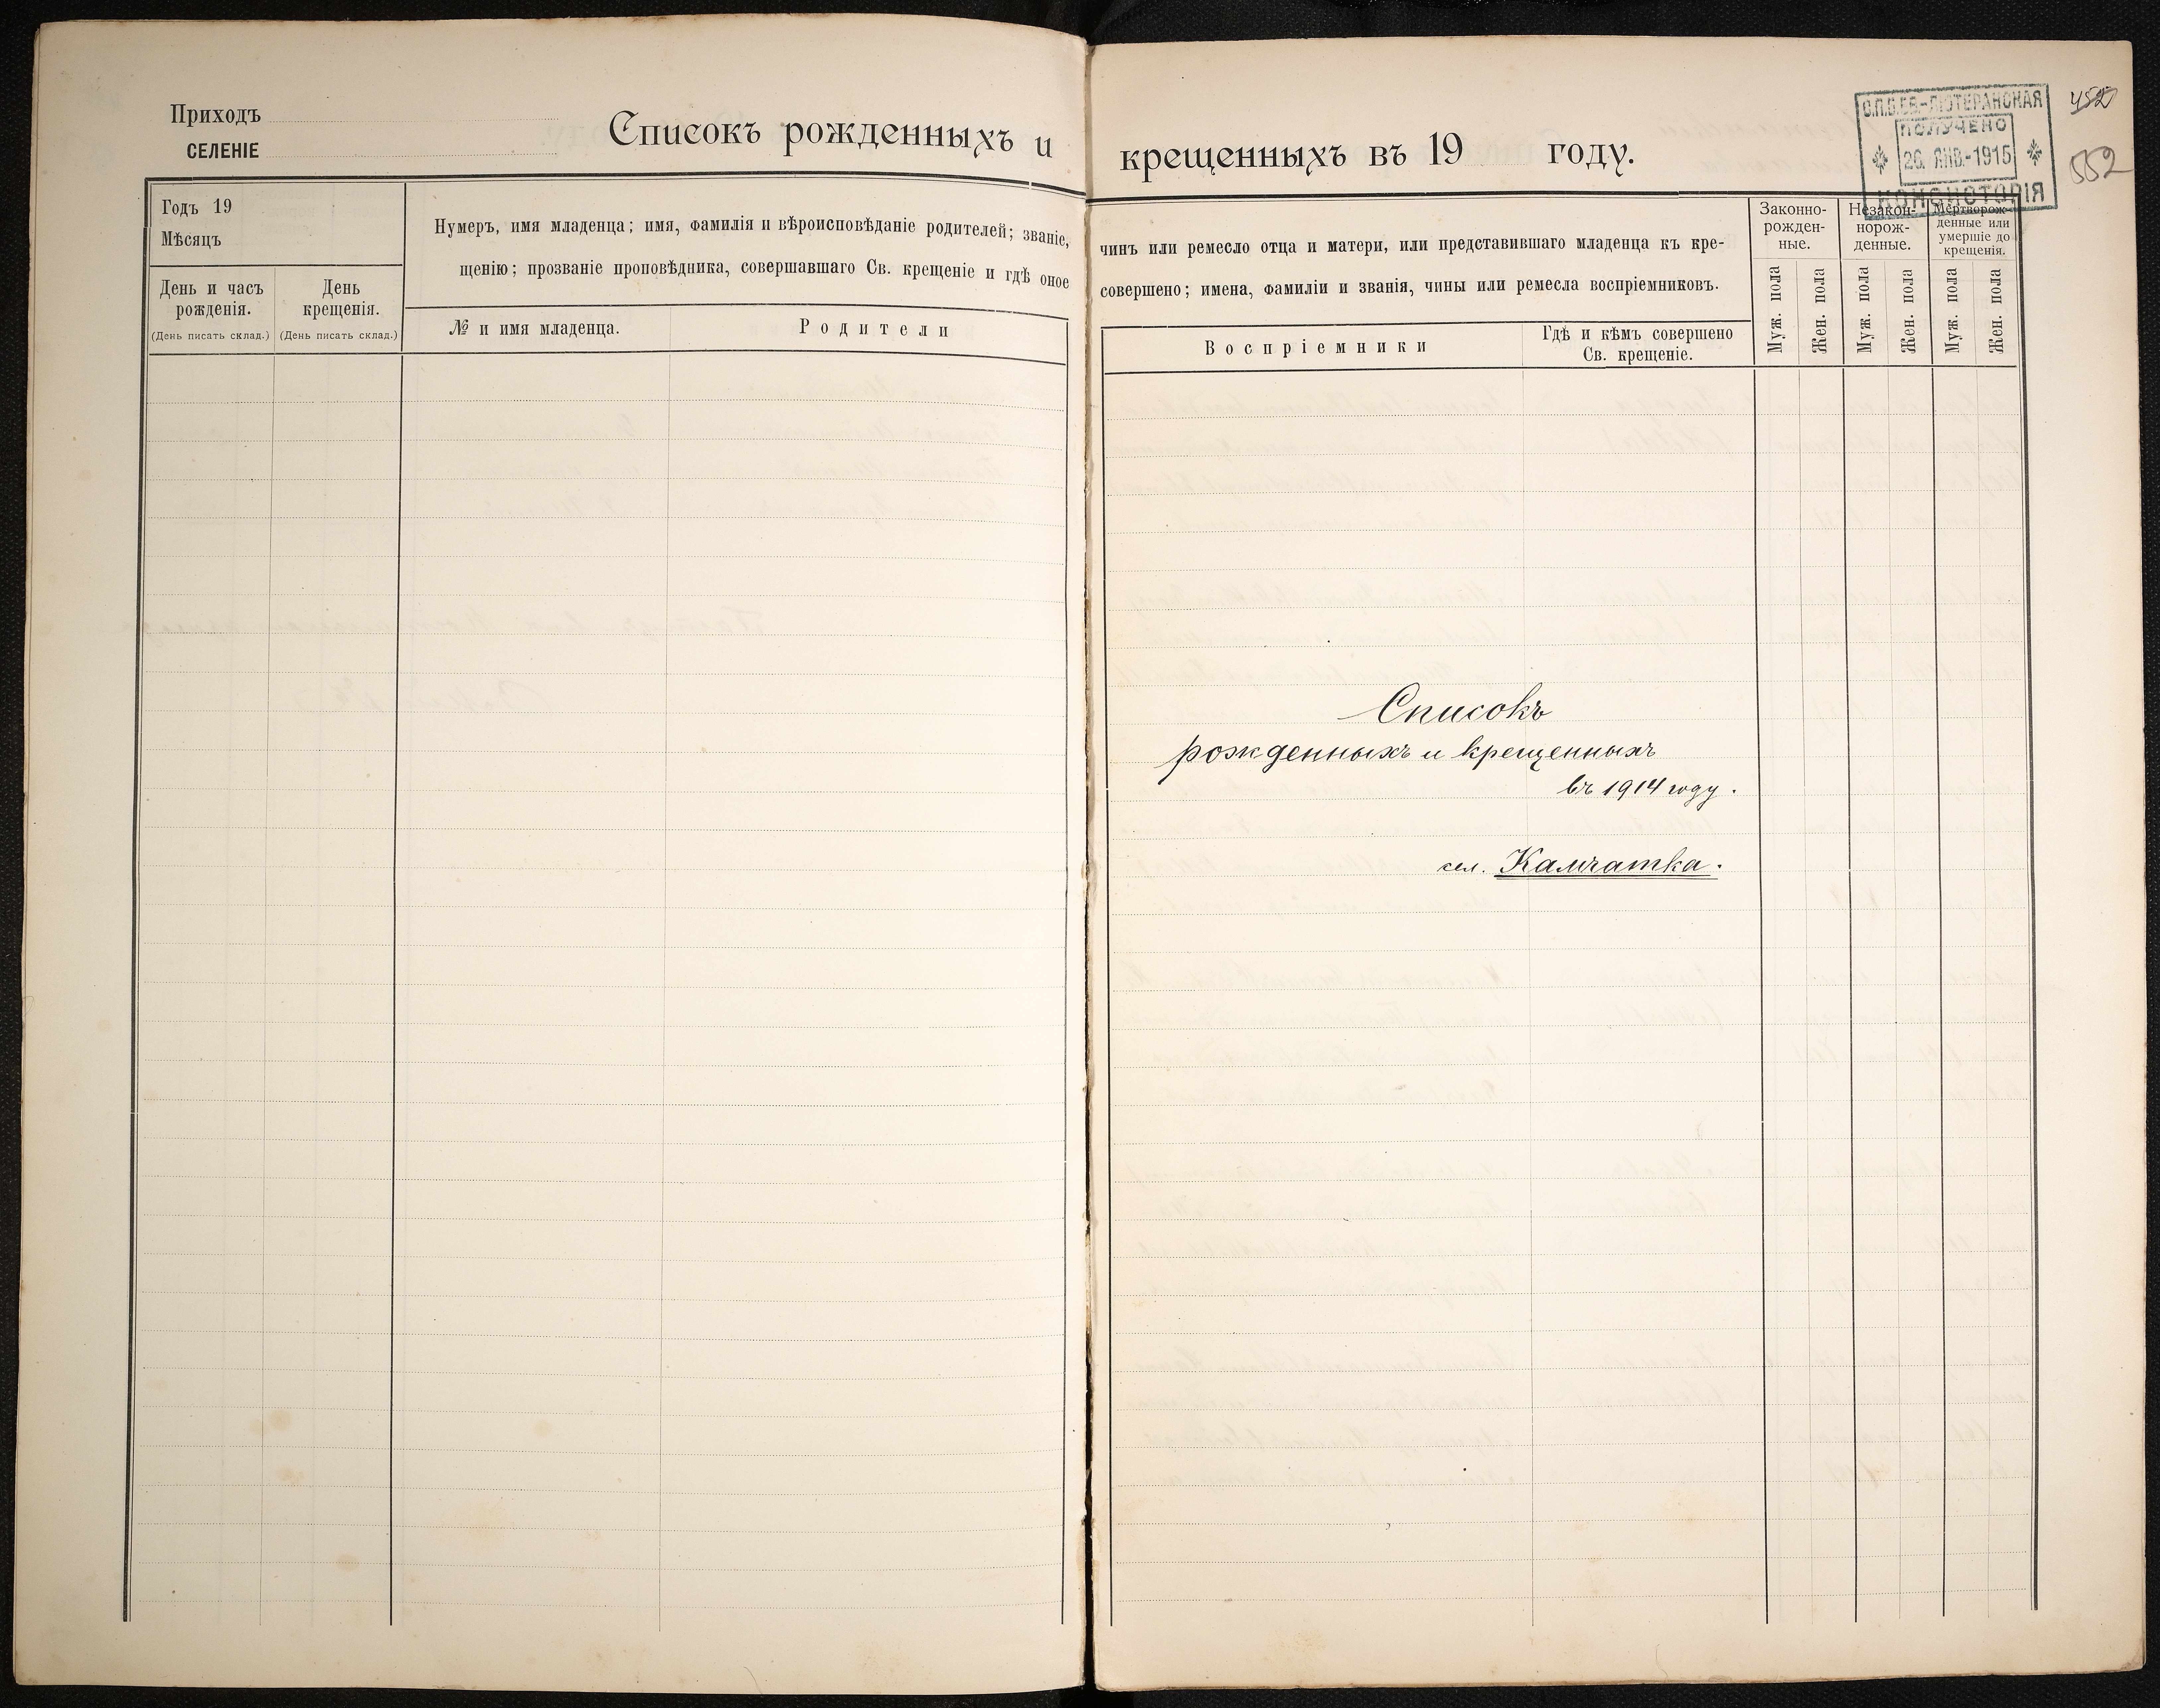 Приходъ
СЕЛЕНІЕ
Списокъ рожденныхъ и
Годъ 19
Мѣсяцъ
День и часъ
рожденія.
(День писать склад.)
День
крещенія.
(День писать склад.)
Нумеръ, имя младенца; имя, фамилія и вѣроисповѣданіе родителей; званіе,
щенію; прозваніе проповѣдника, совершавшаго Св. крещеніе и гдѣ оное
№ и имя младенца.
Родители
крещенныхъ въ 19 году.
С.П.Б. ЕВ.-ЛЮТЕРАНСКАЯ
ПОЛУЧЕНО
26. ЯНВ.-1915
КОНСИСТОРІЯ
552
чинъ или ремесло отца и матери, или представившаго младенца къ кре-
совершено; имена, фамиліи и званія, чины или ремесла воспріемниковъ.
Воспріемники
Гдѣ и кѣмъ совершено
Св. крещеніе.
Законно-
рожден-
ные.
Незакон-
норож-
денные.
Мертворож-
денные или
умершіе до
крещенія.
Муж. пола
Жен. пола
Муж. пола
Жен. пола
Муж. пола
Жен. пола
Списокъ
рожденныхъ и крещенныхъ
въ 1914 году.
сел. Камчатка.